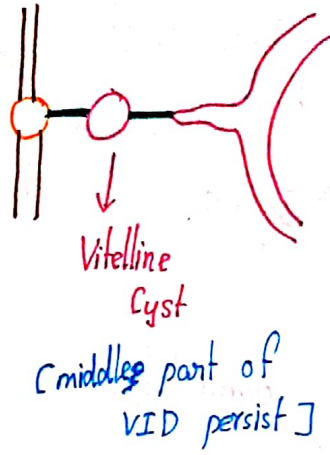 Vitelline
Cyst
[middle part of
VID persist]